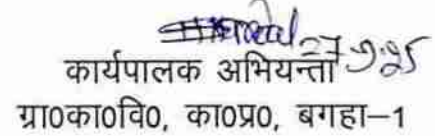 27.9.25
कार्यपालक अभियन्ता
ग्रा0का0वि0, का0प्र0, बगहा–1